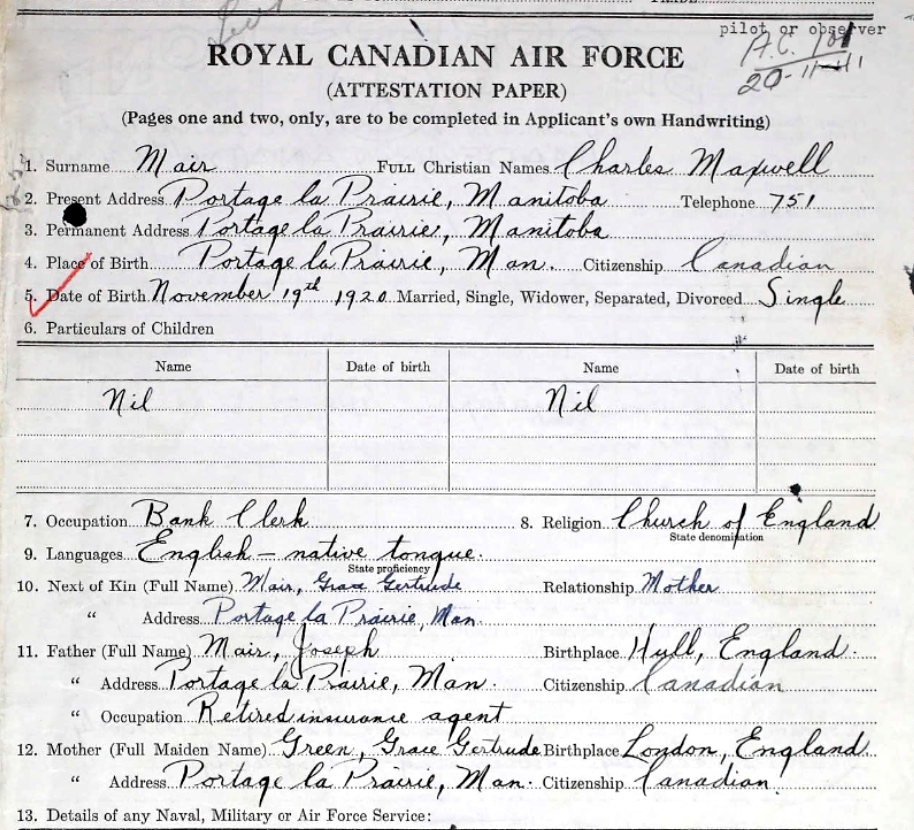 pilot or observer
ROYAL CANADIAN AIR FORCE
20-11-41
(ATTESTATION PAPER)
(Pages one and two, only, are to be completed in Applicant's own Handwriting)
1. Surname Mair FULL Christian Names Charles Maxwell
2. Present Address Portage la Prairie, Manitoba Telephone 751
3. Permanent Address Portage la Prairie, Manitoba
4. Place of Birth Portage la Prairie, Man. Citizenship Canadian
5. Date of Birth November 19th 1920 Married, Single, Widower, Separated, Divorced Single
6. Particulars of Children
Name Date of birth Name Date of birth
Nil Nil
7. Occupation Bank Clerk 8. Religion Church of England
State denomination
9. Languages English – native tongue.
State proficiency
10. Next of Kin (Full Name) Mair, Grace Gertrude Relationship Mother
" Address Portage la Prairie, Man.
11. Father (Full Name) Mair, Joseph Birthplace Hull, England.
" Address Portage la Prairie, Man. Citizenship Canadian
" Occupation Retired insurance agent
12. Mother (Full Maiden Name) Green, Grace Gertrude Birthplace London, England
" Address Portage la Prairie, Man. Citizenship Canadian
13. Details of any Naval, Military or Air Force Service: